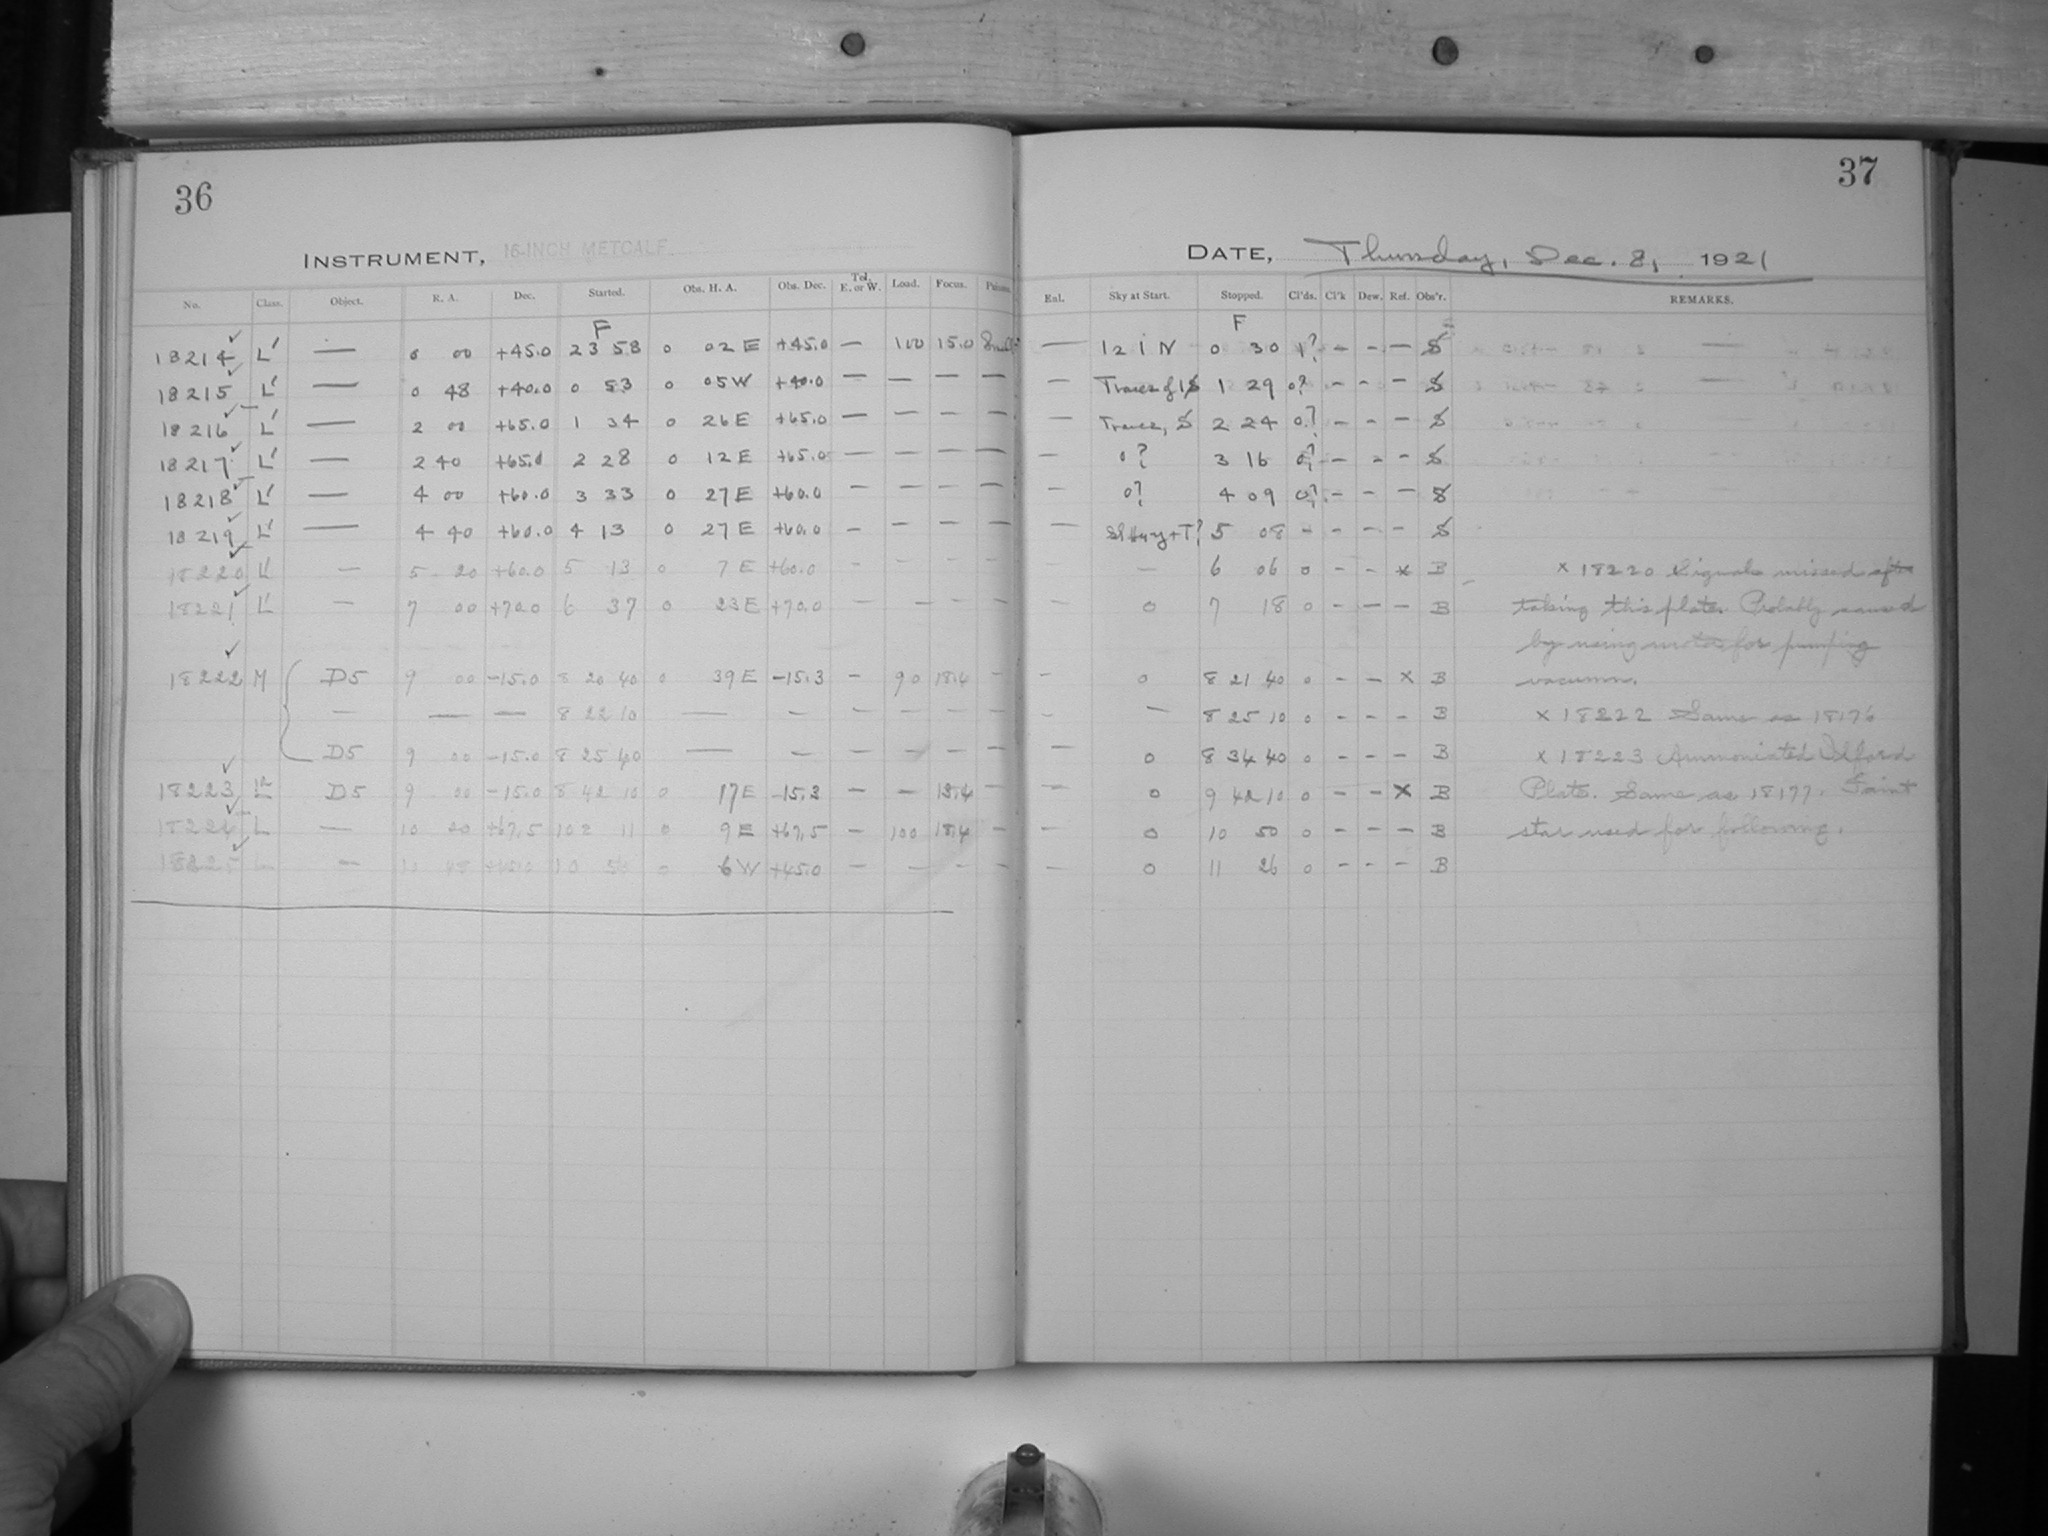 36
37
INSTRUMENT, 16-INCH METCALF
DATE, Thursday, Dec. 8, 1921
No. Class. Object. R. A. Dec. Started. Obs. H. A. Obs. Dec. Tel. E. or W. Load. Focus. Enl. Sky at Start. Stopped. Cl'ds. Cl'k Dew. Ref. Obs'r. REMARKS.
F F
18214 L' — 0 00 +45.0 23 58 0 02 E +45.0 — 100 15.0 — 12 i N 0 30 1? - - — S
18215 L' — 0 48 +40.0 0 53 0 05 W +40.0 — — — — — Traces of 1 1 29 0? - - - S
18216 L' — 2 00 +65.0 1 34 0 26 E +65.0 — — — — — Traces, S 2 24 0? - - - S
18217 L' — 2 40 +65.0 2 28 0 12 E +65.0 — — — — — 0? 3 16 0? - - - S
18218 L' — 4 00 +60.0 3 33 0 27 E +60.0 — — — — — 0? 4 09 0? - - - S
18219 L' — 4 40 +60.0 4 13 0 27 E +60.0 — — — — — Sl Hazy + T? 5 08 - - - - S
18220 L' — 5 20 +60.0 5 13 0 7 E +60.0 - - - - - — 6 06 0 - - x B x 18220 Signals missed after
18221 L' — 7 00 +70.0 6 37 0 23 E +70.0 - - - - - 0 7 18 0 - - - B taking this plate. Probably caused
by using motor for pumping
18222 M D5 9 00 -15.0 8 20 40 0 39 E -15.3 - 90 18.4 - - 0 8 21 40 0 - - x B vacuum.
— — — 8 22 10 — — - - - - - — 8 25 10 0 - - - B x 18222 Same as 18176
D5 9 00 -15.0 8 25 40 — — - - - - — 0 8 34 40 0 - - - B x 18223 Ammoniated Ilford
18223 D5 9 00 -15.0 8 42 10 0 17 E -15.3 - - 18.4 - — 0 9 42 10 0 - - x B Plate. Same as 18177. Faint
18224 L — 10 20 +67.5 10 2 11 0 9 E +67.5 - 100 18.4 - — 0 10 50 0 - - - B star used for following.
18225 — +45.0 10 0 6 W +45.0 - - - - — 0 11 26 0 - - - B